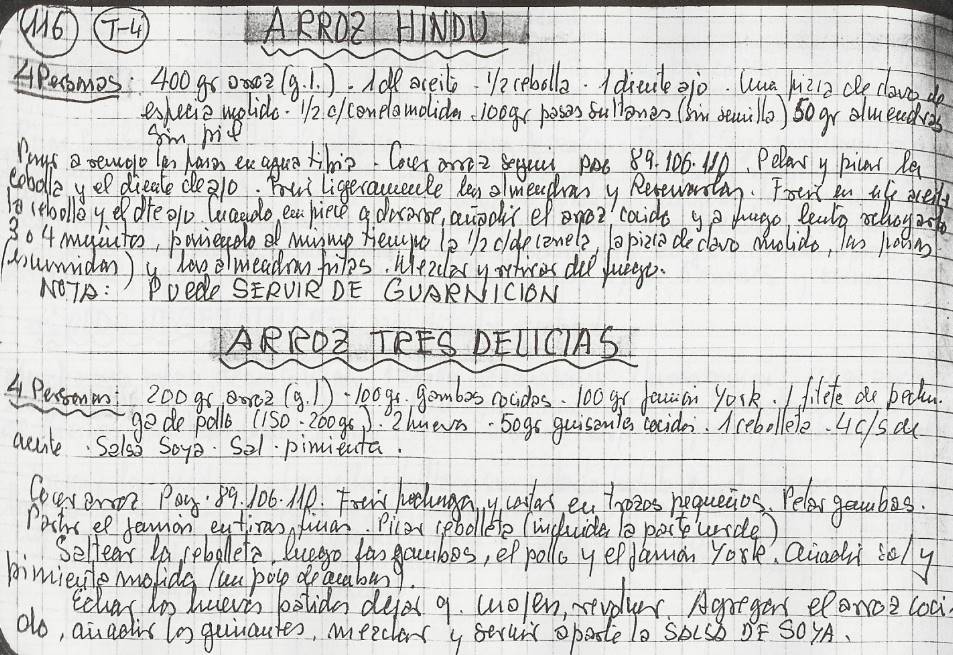 116 T-4 ARROZ HINDU
4 Personas: 400 gr arroz (g.l.) - 1 dl aceite - 1/2 cebolla - 1 diente ajo - Una pizca de clavo de
especia molido - 1/2 c/canela molida - 100 gr pasas sultanas (sin semilla) 50 gr almendras
sin piel
a remojo las pasas en agua tibia - Cocer arroz según pag 89.106.110. Pelar y picar la
cebolla y el diente de ajo. Freir ligeramente las almendras y Reservarlas. Freir en el aceite
la cebolla y el dte ajo Cuando empiece a dorarse, añadir el arroz cocido y a fuego lento rehogarlo
3 o 4 minutos, poniendo al mismo tiempo la 1/2 c/de canela, la pizca de clavo molido, las pasas
(escurridas) y las almendras fritas. Mezclar y retirar del fuego.
NOTA: PUEDE SERVIR DE GUARNICION
ARROZ TRES DELICIAS
4 Personas: 200 gr arroz (g.l) - 100 gr. gambas cocidas - 100 gr jamón York. 1 filete de pechu-
ga de pollo (150-200 gr). 2 huevos - 50 gr guisantes cocidos. 1 cebolleta. 4 c/s de
aceite - Salsa Soya - Sal - pimienta.
Cocer arroz Pag. 89.106.110. Freir pechuga y cortar en trozos pequeños. Pelar gambas.
Partir el jamón en tiras finas. Picar cebolleta (incluida la parte verde)
Saltear la cebolleta, luego las gambas, el pollo y el jamón York. añadir sal y
pimienta molida (un poco de ambas).
Echar los huevos batidos dejar q. cuajen, revolver. Agregar el arroz coci-
do, añadir los guisantes, mezclar y servir aparte la SALSA DE SOYA.